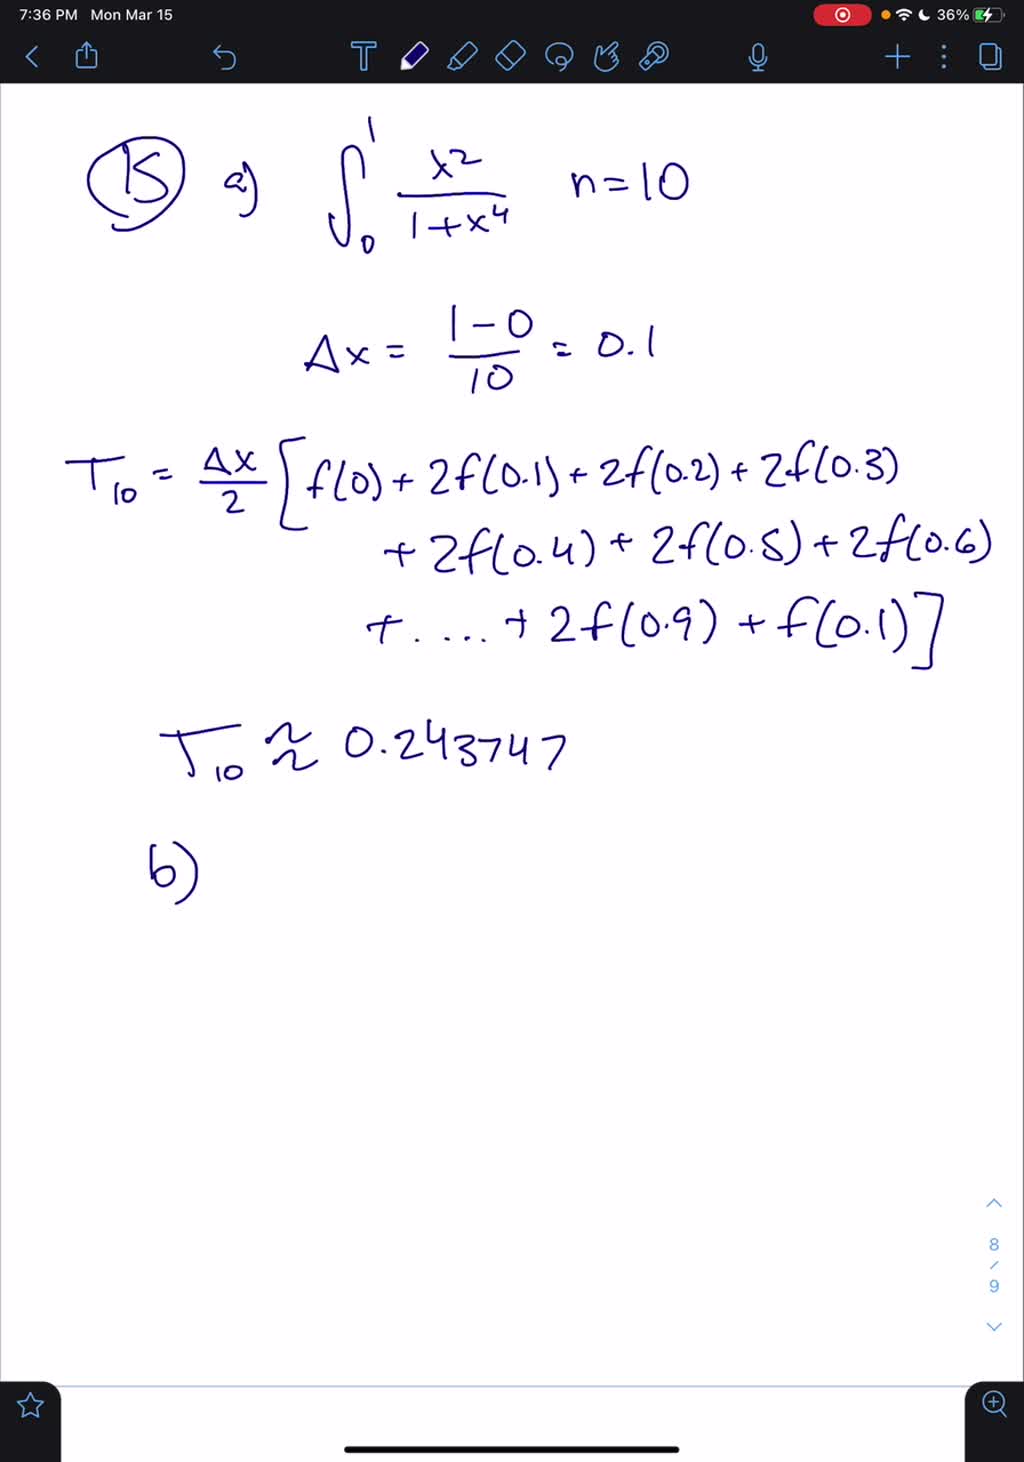 7:36 PM Mon Mar 15 36%
T
15 a) ∫₀¹ x²/(1+x⁴) n=10
Δx = (1-0)/10 = 0.1
T₁₀ = Δx/2 [f(0) + 2f(0.1) + 2f(0.2) + 2f(0.3)
+ 2f(0.4) + 2f(0.5) + 2f(0.6)
+ .... + 2f(0.9) + f(0.1)]
T₁₀ ≈ 0.243747
b)
8
/
9